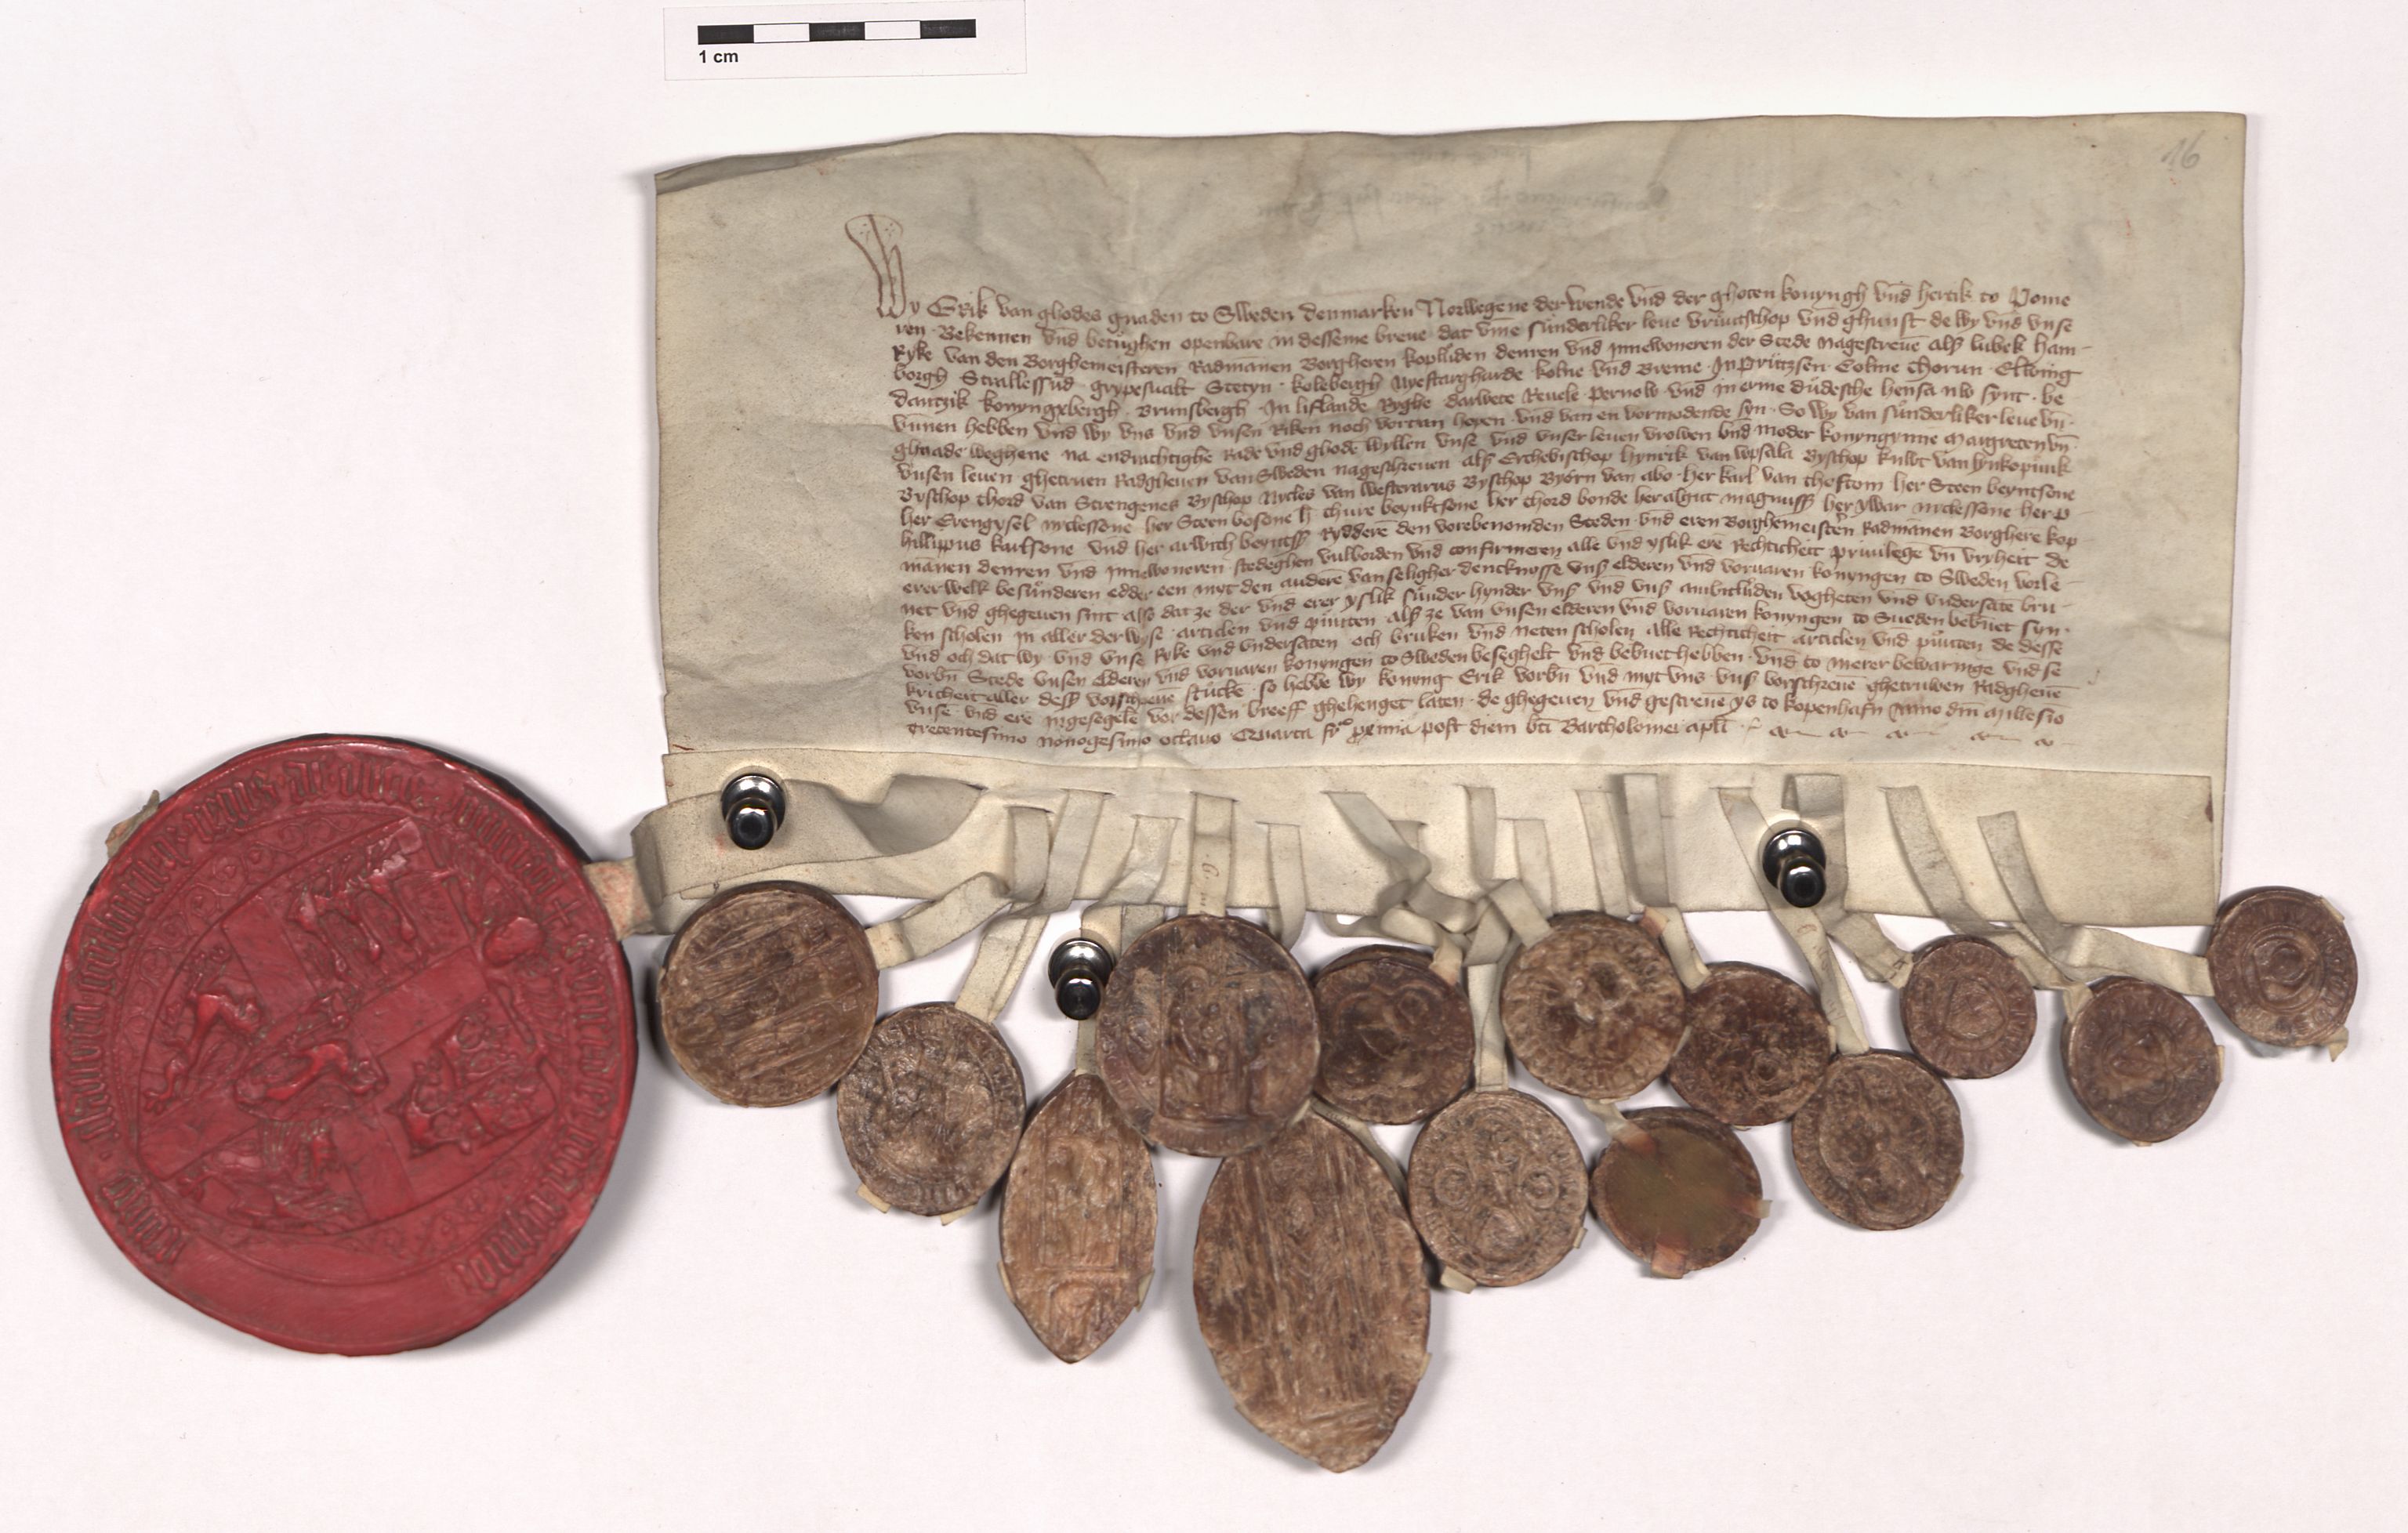 1 cm
16
Wy Erik van ghodes gnaden to Sweden denmarken Norwegene der wende vnd der ghoten konyngh vnd hertik to Pome
ren · Bekennen vnd betughen openbare in desseme breue dat vme sunderliker leue vruntschop vnd ghunst de wy vnd vnse
Ryke van den Borghemeisteren Radmanen Borgheren kopluden denren vnd jnnewoneren der Stede nagescreuen als lubek ham-
borgh Strallessund grypesualt Stetyn · kolebergh Nyestargharde · kolne vnd Breme · Jn prutzsen Colme thorun · Elbing
dantzik konyngxbergh · Brunsbergh · Jn liflande Ryghe darpete Reuele pernow vnd jn erme dudesche hensa nw synt · be-
vunnen hebben vnd wy vns vnd vnsen Riken noch vortan hopen vnd van en vormodende syn · So wy van sunderliker leue vn-
ghnade weghene na endrachtighe Rade vnd ghode wyllen vnse vnd vnser leuen vrowen vnd moder konyngynne Margreten vn
vnsen leuen ghetruen Radgheuen van Sweden nagescreuen als Erchebischop hynrik van vpsala Byschop knwt van lynkopunk
Byschop thord van Strengenes Byschop Nycles van westerarus Byschop Byorn van abo · her karl van thoftom her Steen beyntsone
her Erengysel nyclessone her Steen bosone h thure beynktsone her thord bonde her algut magnuss her ywar nyclessone her p-
hillippus karlsone vnd her arwith beyntss Ryddere den vorebenomden Steden vnd eren Borghemeisteren Radmanen Borghere kop-
manen denren vnd jnnewoneren stedeghen vulborden vnd confirmeren alle vnd yslik ere Rechticheit priuilege vn vryheit de
erer welk besunderen edder een myt den andere van seligher dencknosse vns elderen vnd voruaren konyngen to Sweden vorle-
net vnd ghegeuen sint also dat ze der vnd erer yslik sunder hynder vns vnd vns ambtluden vogheten vnd vndersate bru-
ken scholen jn aller der wyse · articlen vnd puncten als ze van vnsen elderen vnd voruaren konyngen to Sueden bebreuet syn ·
vnd och dat wy vnd vnse Ryke vnd vndersaten och bruken vnd neten scholen alle Rechticheit articlen vnd puncten de desse
vorbn Stede vnsen elderen vnd voruaren konyngen to Sweden beseghelt vnd bebreuet hebben · vnd to merer bewaringe vnd se
kricheit aller dess vorscreuene stucke · so hebbe wy konyng Erik vorbn vnd myt vns vns vorschreuene ghetruwen Radgheuen
vnse vnd ere ingesegele vor dessen breeff ghehenget laten · de ghegeuen vnd gescreuen ys to kopenhafn Anno dni Millesio
trecentesimo nonogesimo octauo Quarta fra proxima post diem bti Bartholomei apli